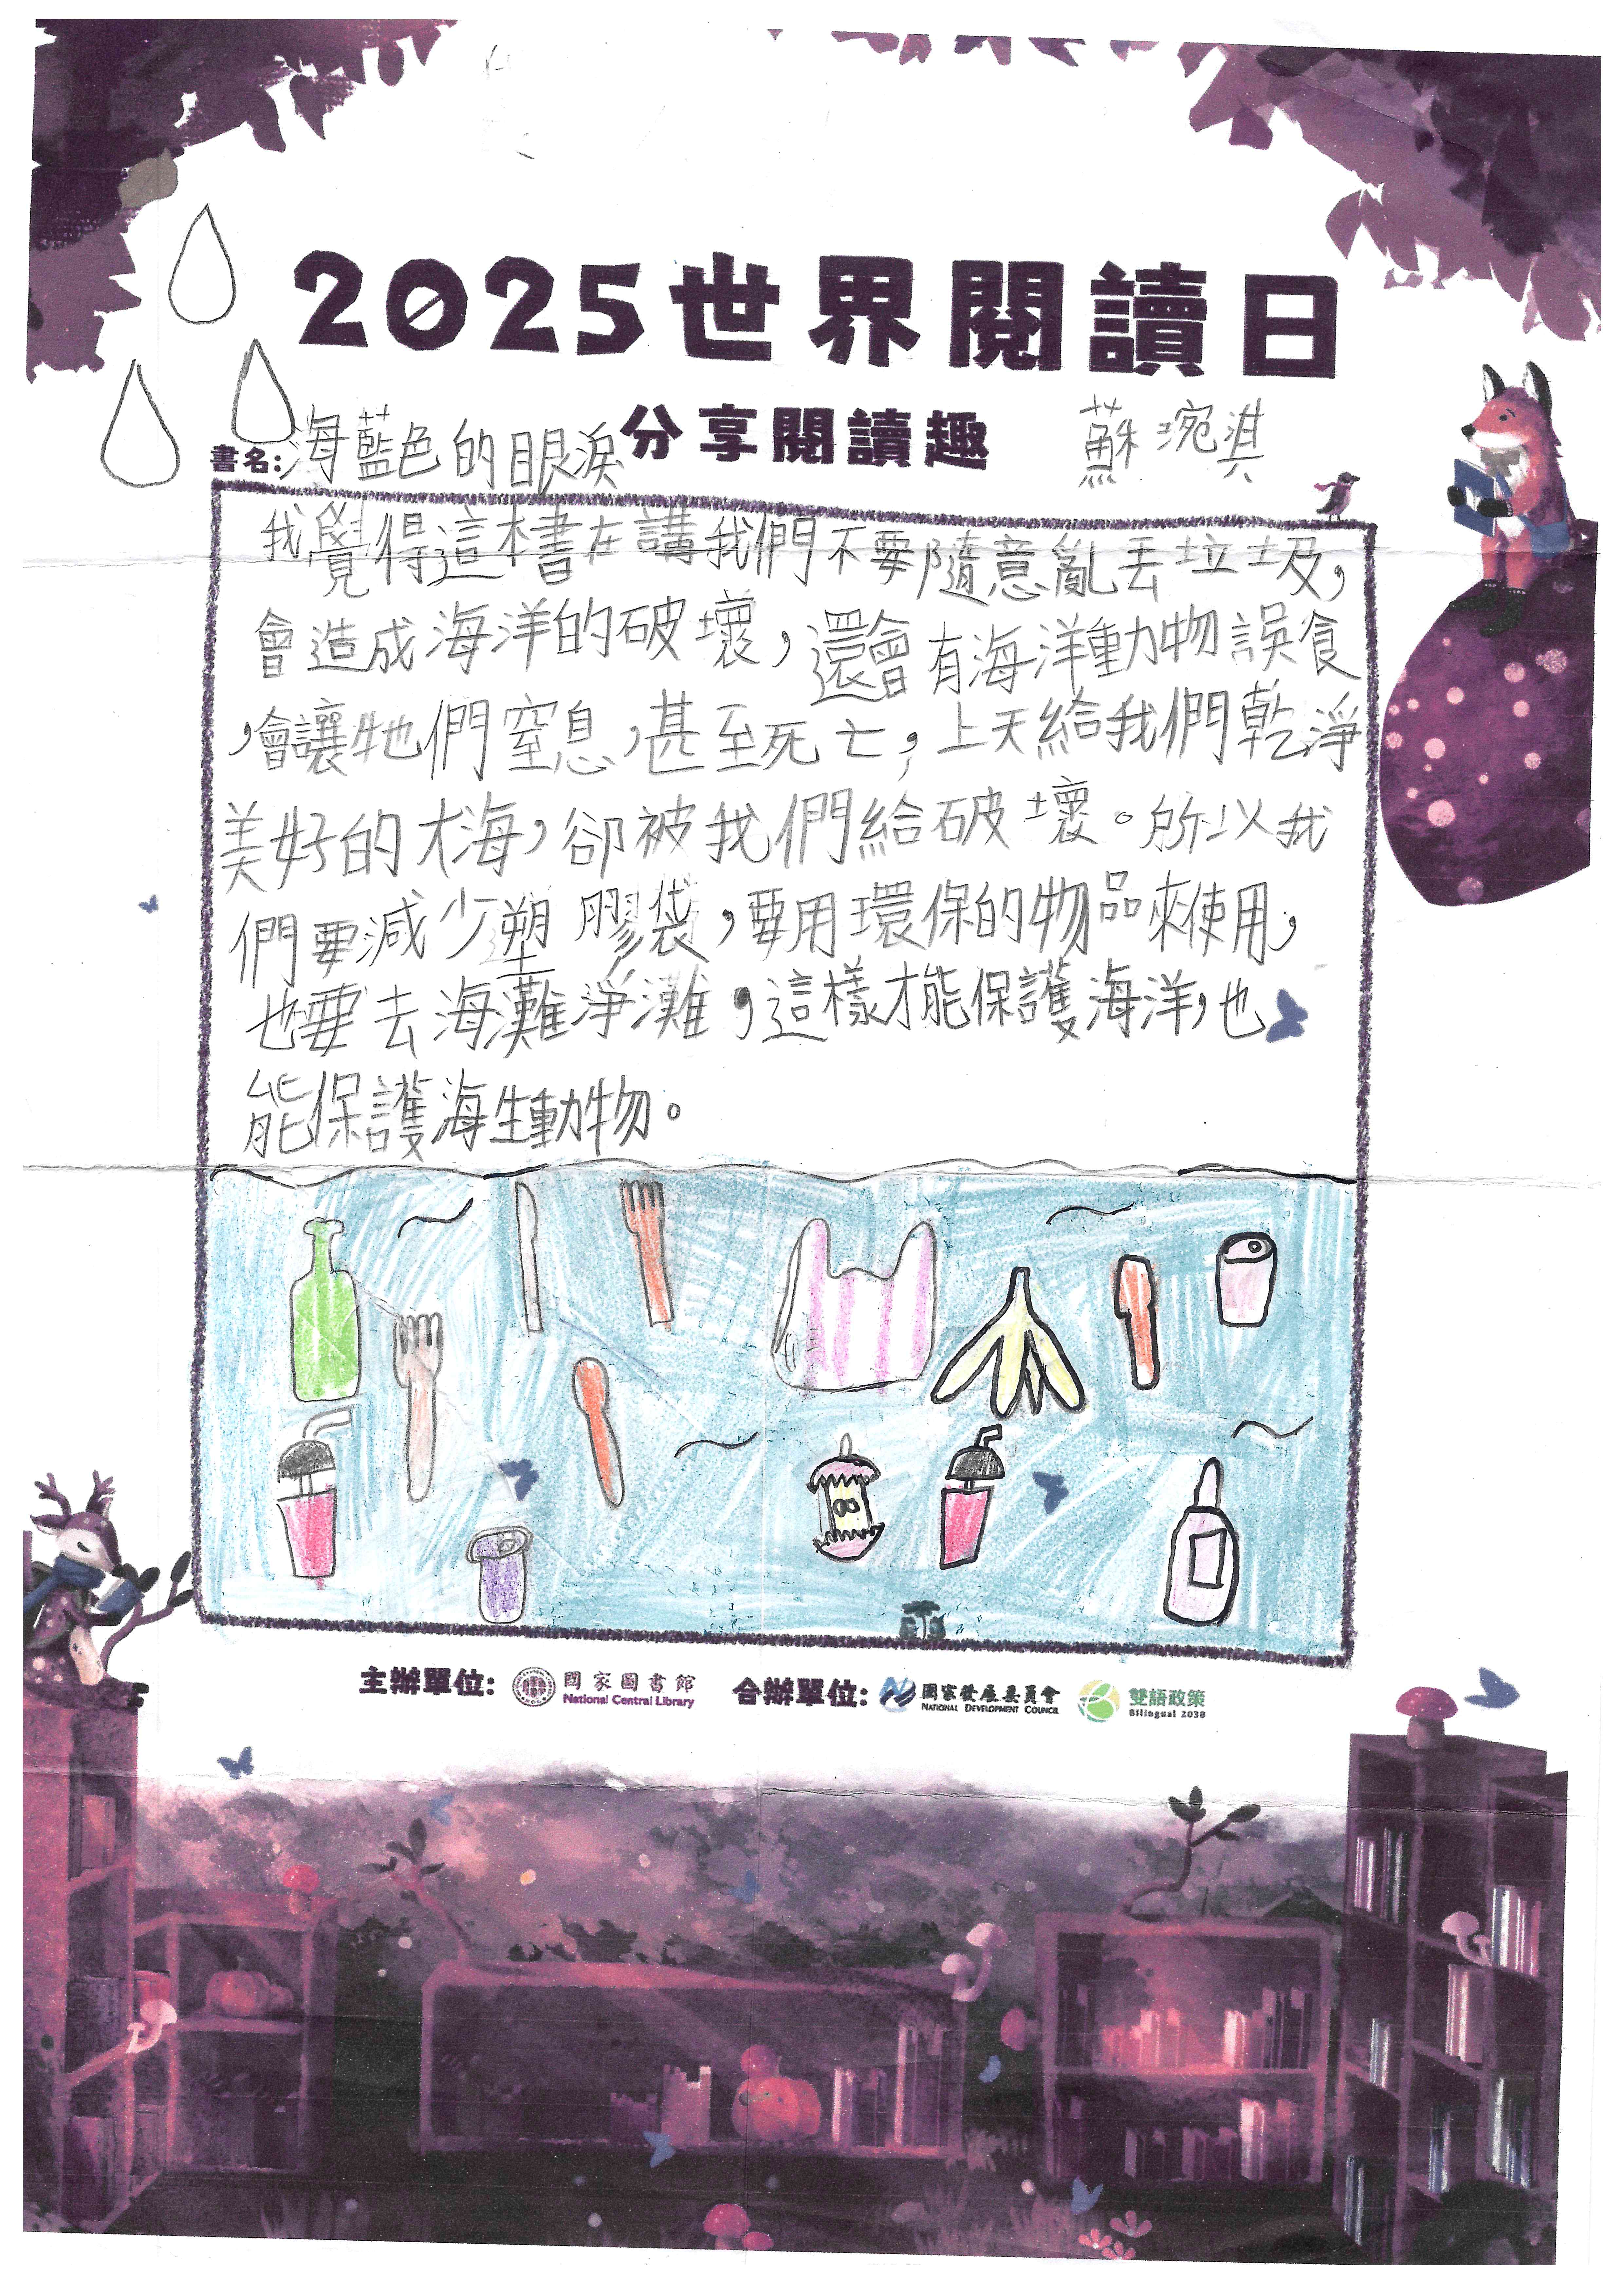 2025世界閱讀日
分享閱讀趣
書名:海藍色的眼淚
蘇琬淇
我覺得這本書在講我們不要隨意亂丟垃圾,
會造成海洋的破壞,還會有海洋動物誤食
,會讓牠們窒息,甚至死亡,上天給我們乾淨
美好的大海,卻被我們給破壞。所以我
們要減少塑膠袋,要用環保的物品來使用,
也要去海灘淨灘,這樣才能保護海洋,也
能保護海生動物。
主辦單位: 國家圖書館 National Central Library 合辦單位: 國家發展委員會 NATIONAL DEVELOPMENT COUNCIL 雙語政策 Bilingual 2030